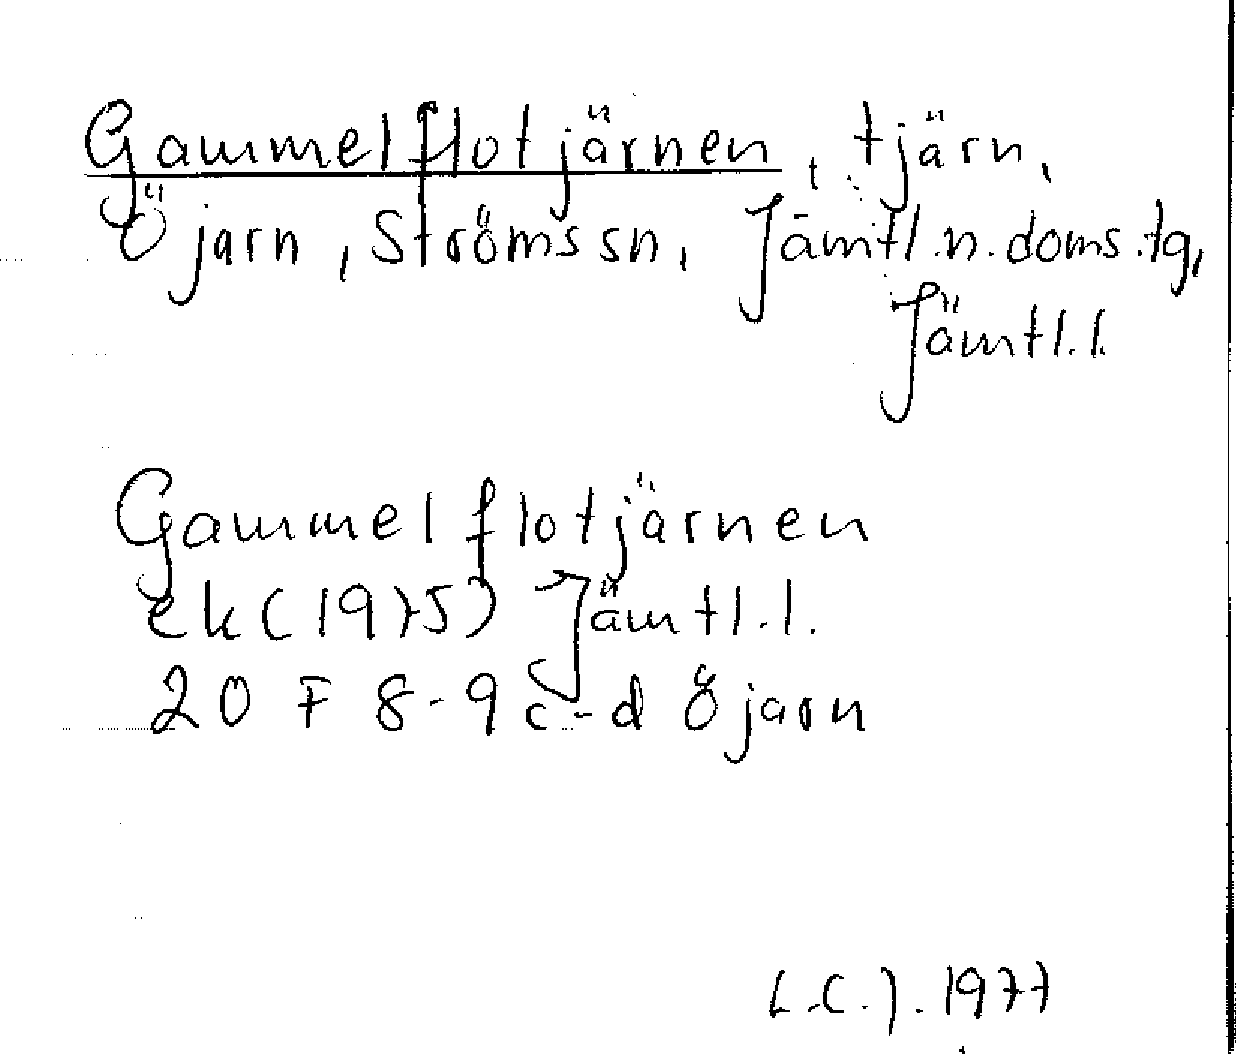 Gammelflotjärnen, tjärn,
Öjarn, Ströms sn, Jämtl.n.doms.tg,
Jämtl.l.
Gammelflotjärnen
ek (1975) Jämtl.l.
20 F 8-9 c-d Öjarn
L.C.J. 1977